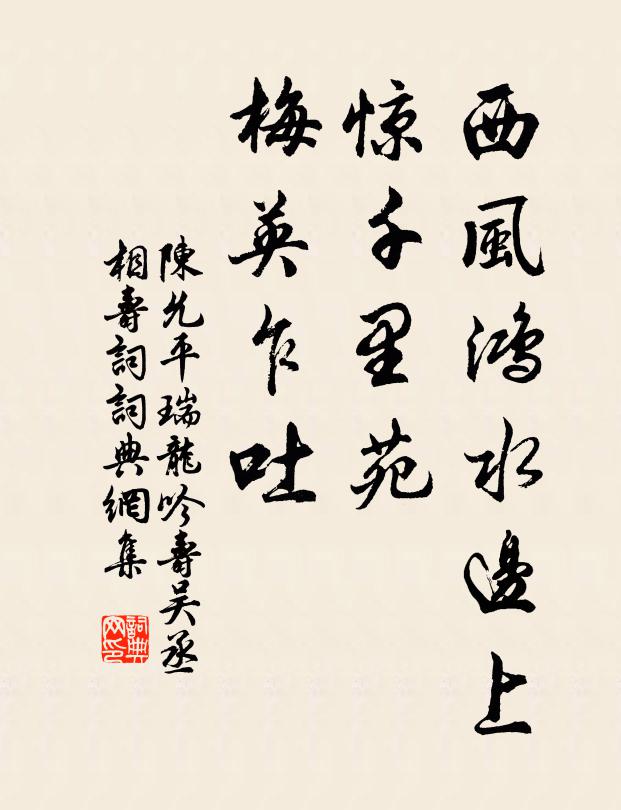 西風鴻水邊上
惊千里苑
梅英乍吐
陳允平瑞龍吟壽吴丞
相壽詞詞典網集
詞典
网印